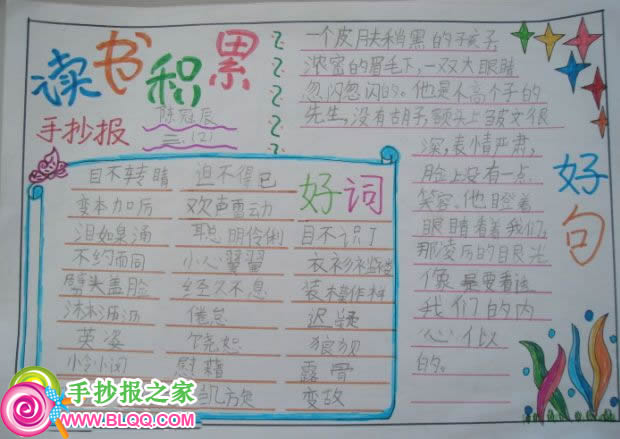 读书积累
手抄报
陈冠辰
三.(2)
一个皮肤稍黑的子孩子,
浓密的眉毛下,一双大眼睛
忽闪忽闪的。他是不高个子的
先生,没有胡子,额头上皱文很
深,表情严肃,
脸上没有一点
笑容。他瞪着
眼睛看着我们,
那凌厉的目光
像是要看透
我们的内
心似
的。
好句
好词
目不转睛 迫不得已
变本加厉 欢声雷动
泪如泉涌 聪明伶俐 目不识丁
不约而同 小心翼翼 衣衫褴褛
劈头盖脸 经久不息 装模作样
倦怠 迟疑
英姿 饶恕 狼狈
慰藉 露骨
变故
手抄报之家
www.BLQQ.COM